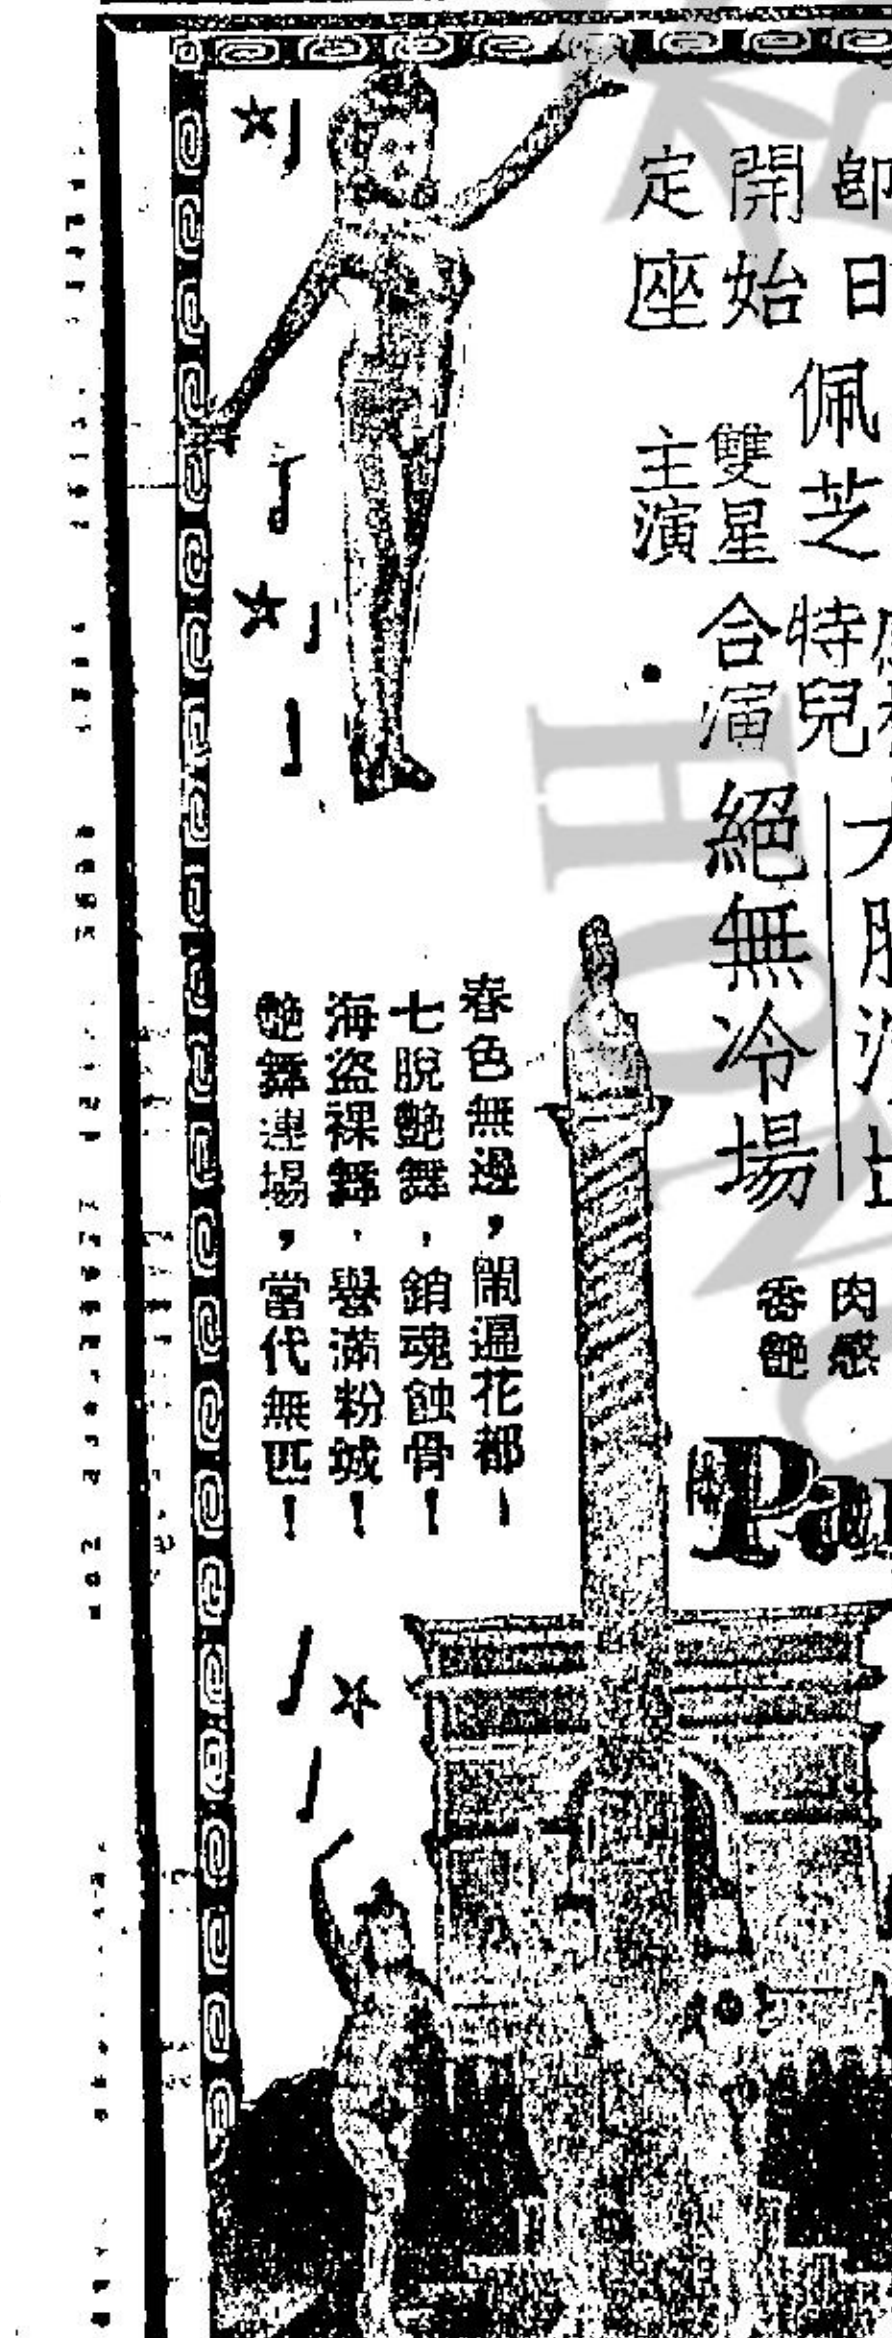 即日
開始
定座
佩芝
特兒
雙星
主演
合演
絕無冷場
肉感
香艷
春色無邊，鬧遍花都！
七脫艷舞，銷魂蝕骨！
海盜裸舞，譽滿粉城！
艷舞連場，當代無匹！
Par
HONG